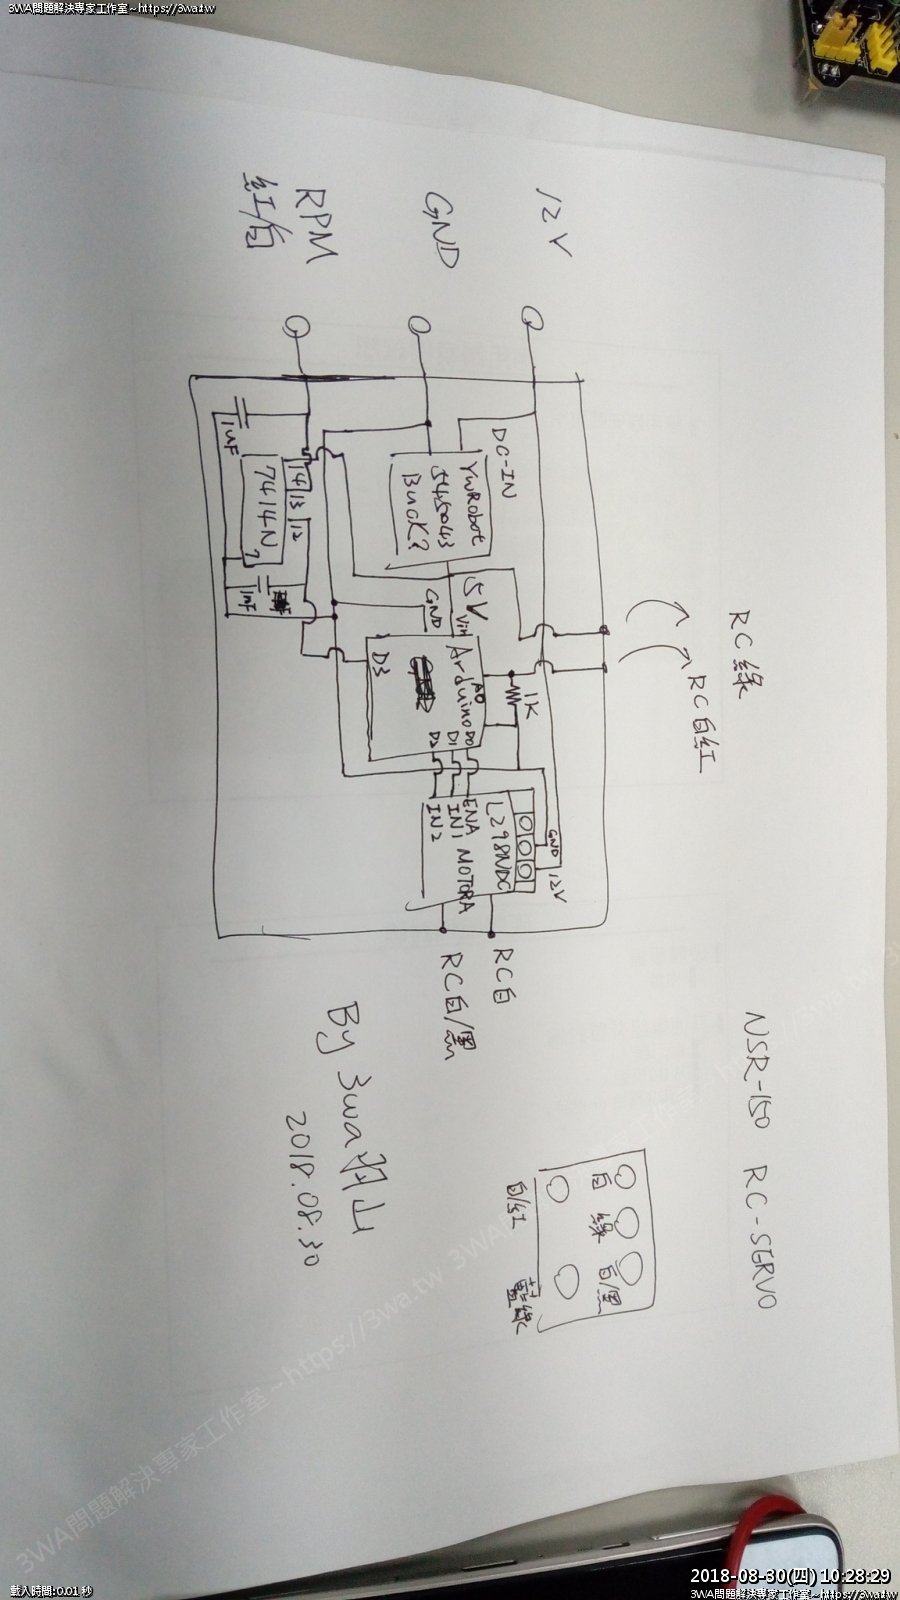 3WA問題解決專家工作室~https://3wa.tw
12V
GND
RPM
紅/白
DC-IN
YwRobot
545043
Buck?
1uF
14 13 12
7414N
7
1nF
5V
GND
Vin
Arduino
A0
D3
D2 D1 D0
1K
RC綠
RC白紅
L298NDC
GND
12V
ENA
IN1
IN2
MOTORA
RC白
RC白/黑
NSR-150 RC-SERVO
白 綠 白/黑
白/紅 藍綠
By 3wa羽山
2018.08.30
3WA問題解決專家工作室~https://3wa.tw
載入時間:0.01 秒
2018-08-30(四) 10:28:29
3WA問題解決專家工作室~https://3wa.tw